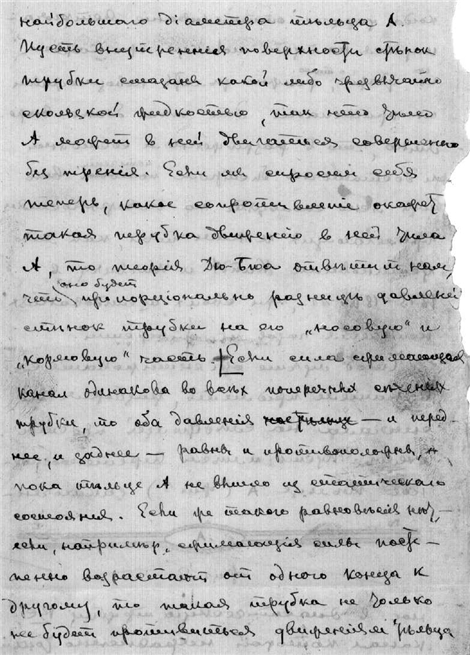 наибольшаго діаметра тѣльца А.
Пусть внутренняя поверхность стѣнок
трубки смазана какой либо чрезвычайно
скользкой жидкостью, так что тѣло
А может в ней двигаться совершенно
без тренія. Если мы спросим себя
теперь, какое сопротивленіе окажет
такая трубка движенію в ней тѣла
А, то теорія Дю-Бюа отвѣтит нам,
что оно будет пропорціонально разницѣ давленій
стѣнок трубки на его „носовую" и
„кормовую" часть. Если сила сжимающая
канал одинакова во всѣх поперечных сѣченіях
трубки, то оба давленія — и перед-
нее, и заднее — равны и противоположны,
пока тѣльце А не вышло из статическаго
состоянія. Если же такого равновѣсія нѣт,
если, напримѣр, сжимающія силы посте-
пенно возрастают от одного конца к
другому, то такая трубка не только
не будет противиться движеніям тѣльца